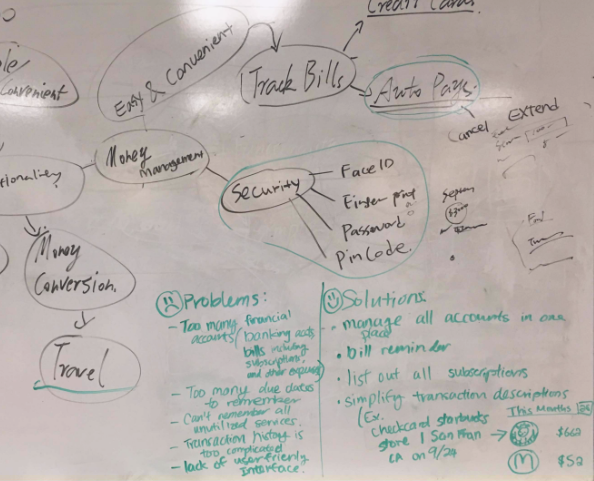 Credit Cards
Convenient
Easy & Convenient
Track Bills
Auto Pays
Cancel
Extend
Money
Management
Security
Face ID
Finger print
Password
Pin Code.
Money
Conversion.
Travel
Problems:
- Too many financial
accounts (banking accts,
bills including
subscriptions,
and other expenses)
- Too many due dates
to remember
- Can't remember all
unutilized services.
- Transaction history is
too complicated
- lack of user friendly
interface.
Solutions
manage all accounts in one
place
• bill reminder
• list out all subscriptions
• simplify transaction descriptions
(Ex.
checkcard starbucks
store 1 San Fran
CA on 9/24
This Months
$662
M
$52